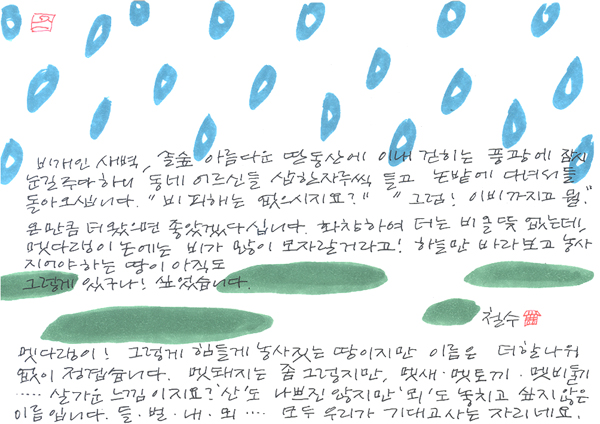 비개인 새벽, 솔숲 아름다운 딸동산에 이내 걷히는 풍광에 잠시
눈길주다 하니 동네 어르신들 삽한자루씩 들고 논밭에 다녀서들
돌아오십니다. "비 피해는 없으시지요?" "그럼! 이비까지고 뭘."
온만큼 더 왔으면 좋았겠다십니다. 화창하여 더는 비올 뜻 없는데,
멧다랑이 논에는 비가 많이 모자랄거라고! 하늘만 바라보고 농사
지어야 하는 땅이 아직도
그렇게 있구나! 싶었습니다.
철수
멧다랑이! 그렇게 힘들게 농사짓는 땅이지만 이름은 더할나위
없이 정겹습니다. 멧돼지는 좀 그렇지만, 멧새·멧토끼·멧비둘기
····· 살가운 느낌이지요? '산'도 나쁘진 않지만 '뫼'도 놓치고 싶지 않은
이름입니다. 들·벌·내·뫼···· 모두 우리가 기대고 사는 자리네요.